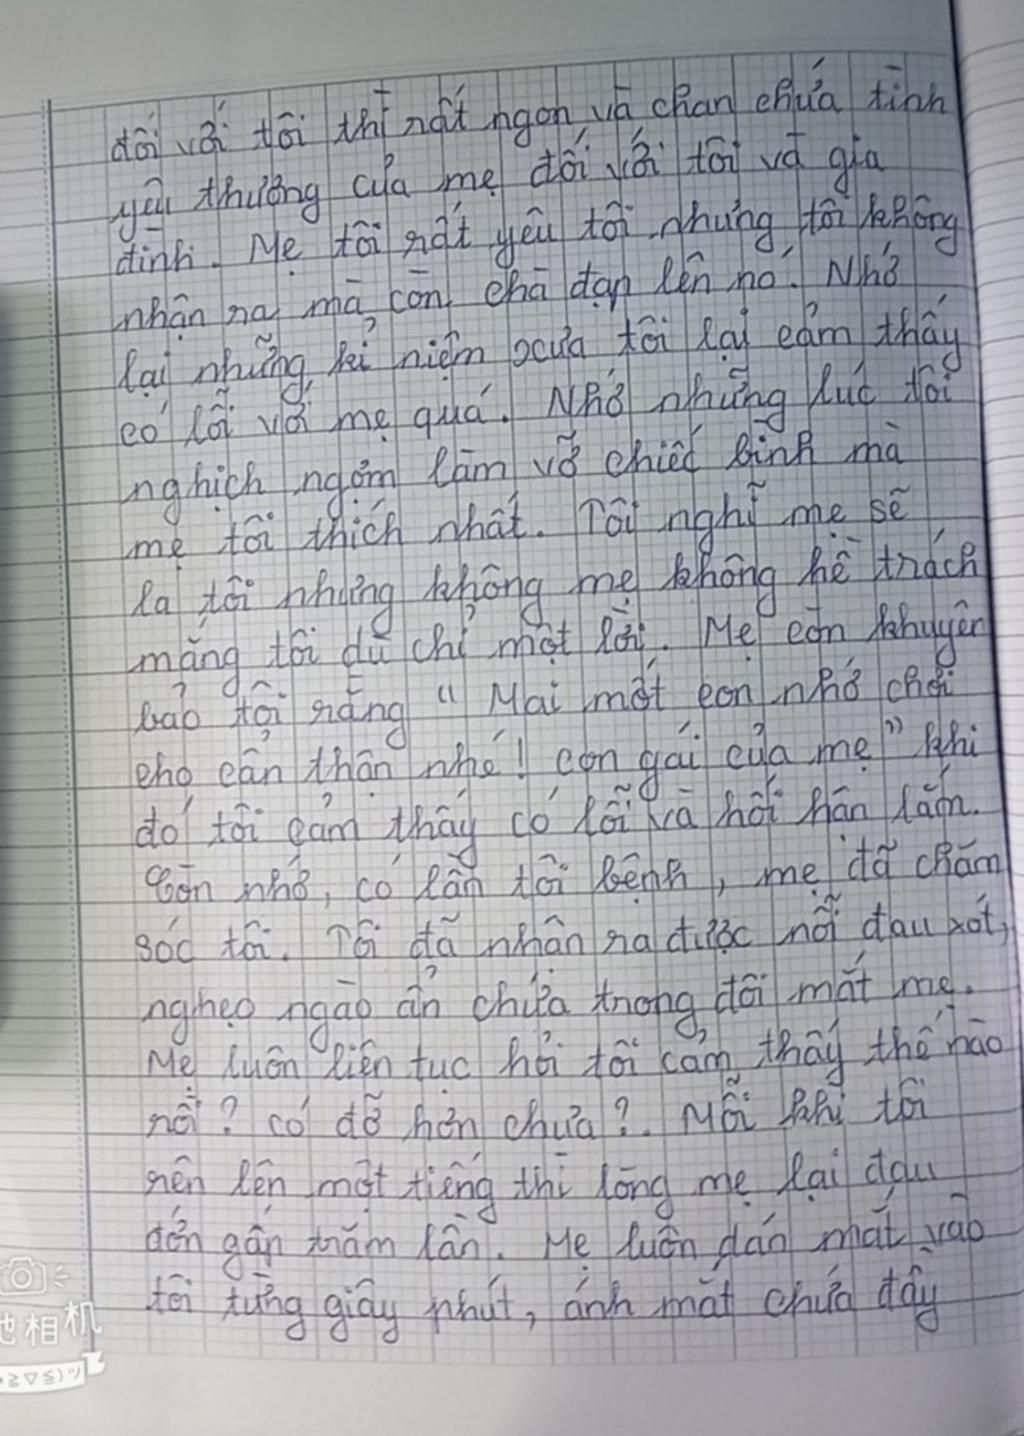 đối với tôi thì rất ngon và chan chứa tình
yêu thương của mẹ đối với tôi và gia
đình. Mẹ tôi rất yêu tôi nhưng tôi không
nhận ra mà còn chà đạp lên nó. Nhớ
lại những kỉ niệm xưa tôi lại cảm thấy
có lỗi với mẹ quá. Nhớ những lúc tôi
nghịch ngợm làm vỡ chiếc bình mà
mẹ tôi thích nhất. Tôi nghĩ mẹ sẽ
la tôi nhưng không mẹ không hề trách
mắng tôi dù chỉ một lời. Mẹ còn khuyên
bảo tôi rằng " Mai mốt con nhớ chơi
cho cẩn thận nhé! con gái của mẹ" khi
đó tôi cảm thấy có lỗi và hối hận lắm.
Còn nhớ, có lần tôi bệnh, mẹ đã chăm
sóc tôi. Tôi đã nhận ra được nỗi đau xót,
nghẹo ngào ẩn chứa trong đôi mắt mẹ.
Mẹ luôn liên tục hỏi tôi cảm thấy thế nào
rồi? có đỡ hơn chưa?. Mỗi khi tôi
rên lên một tiếng thì lòng mẹ lại đau
đớn gấp trăm lần. Mẹ luôn dán mắt vào
tôi từng giây phút, ánh mắt chứa đầy
相机